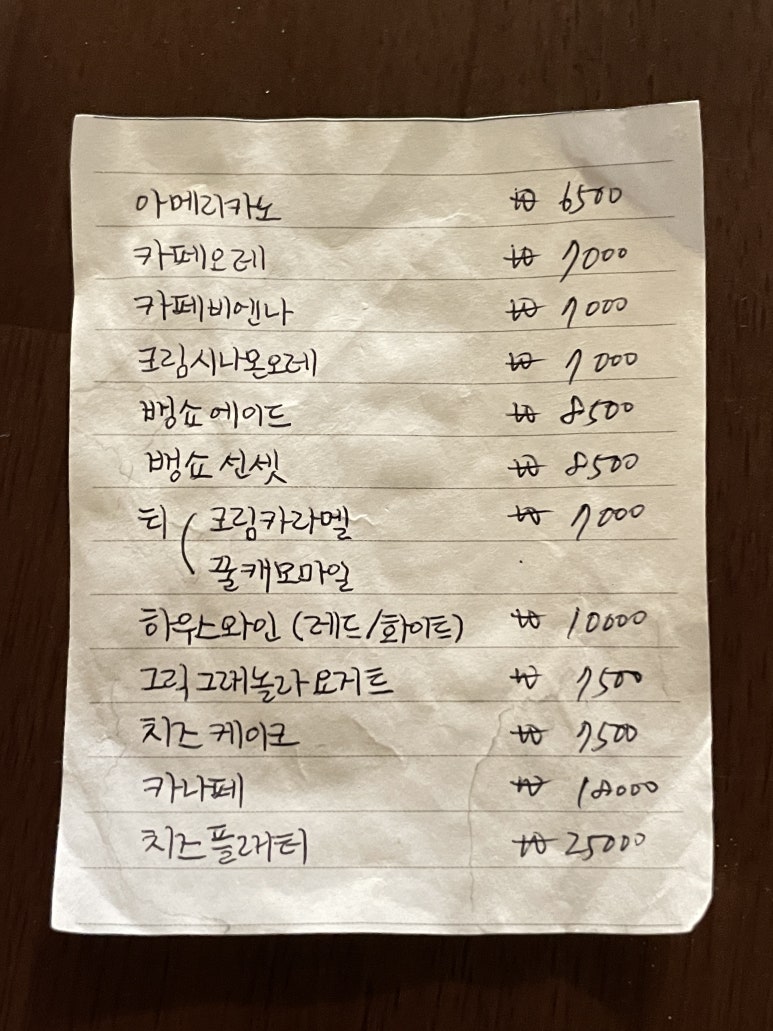 아메리카노 ₩ 6500
카페오레 ₩ 7000
카페비엔나 ₩ 7000
크림시나몬오레 ₩ 7000
뱅쇼에이드 ₩ 8500
뱅쇼선셋 ₩ 8500
티 ( 크림카라멜 ₩ 7000
꿀캐모마일
하우스와인 (레드/화이트) ₩ 10000
그릭그래놀라요거트 ₩ 7500
치즈케이크 ₩ 7500
카나페 ₩ 18000
치즈플래터 ₩ 25000